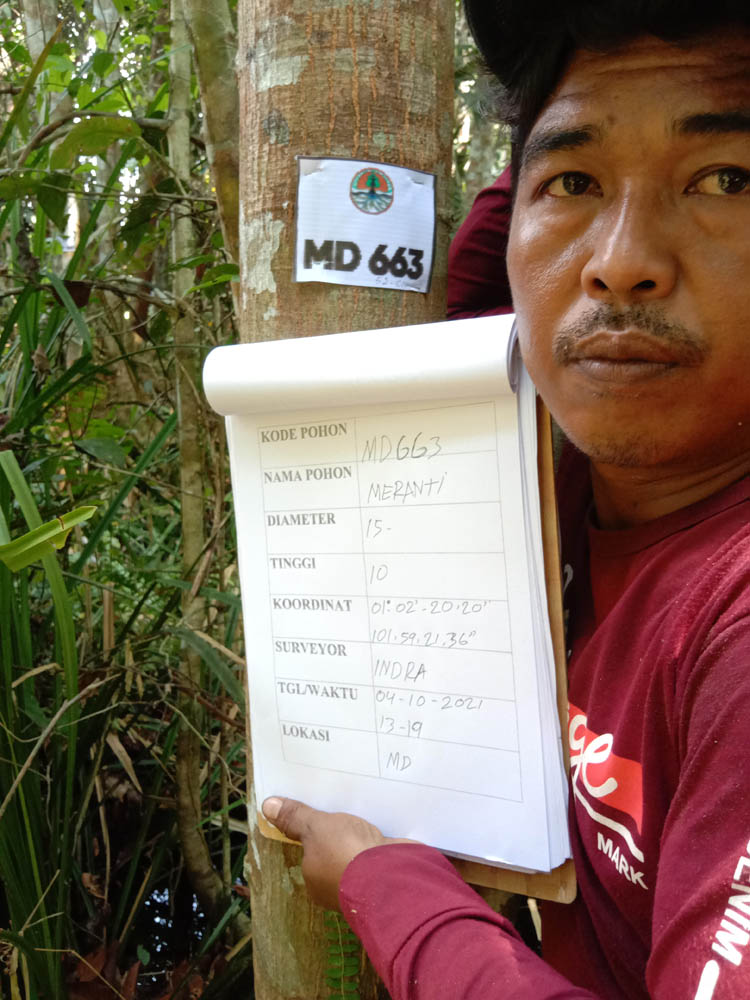 MD 663
KODE POHON MD663
NAMA POHON MERANTI
DIAMETER 15-
TINGGI 10
KOORDINAT 01°.02'-20.20"
101.59.21.36"
SURVEYOR INDRA
TGL/WAKTU 04-10-2021
13-19
LOKASI MD
ge
MARK
DENIM